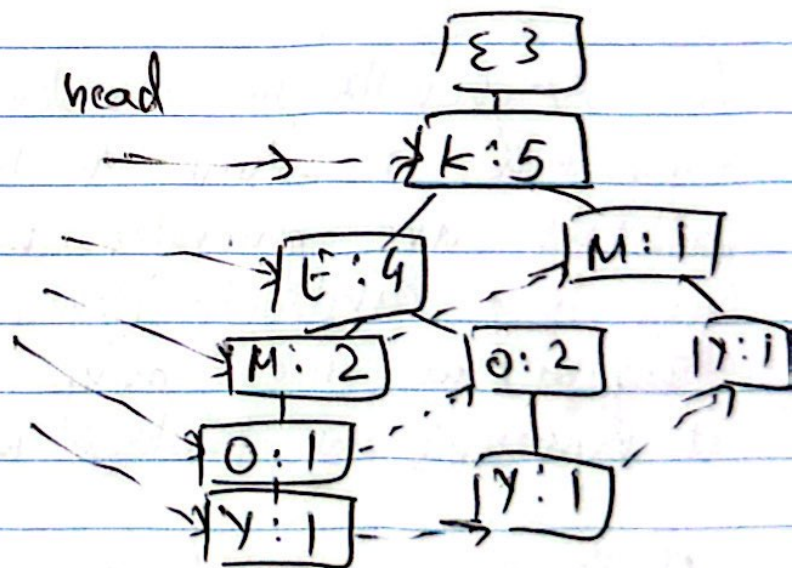 { }
head
K:5
E:4 M:1
M:2 O:2 Y:1
O:1
Y:1 Y:1